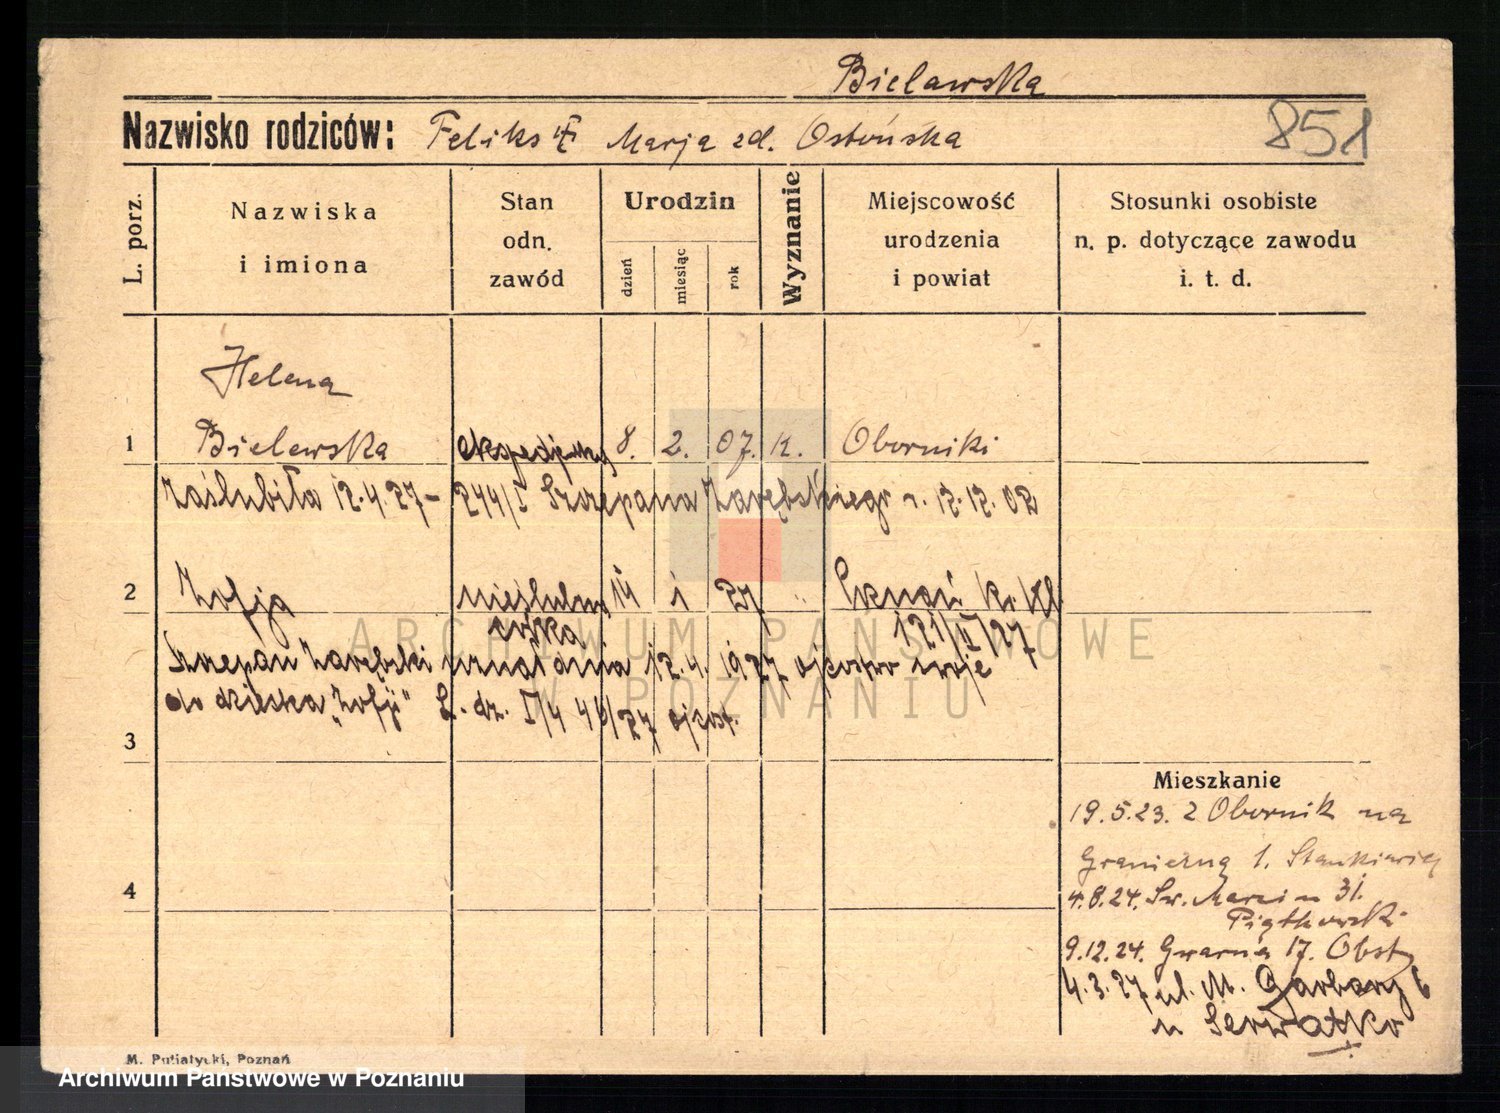 Bielawska
Nazwisko rodziców: Feliks i Marja zd. Ostońska
851
L. porz.
Nazwiska
i imiona
Stan
odn.
zawód
Urodzin
dzień
miesiąc
rok
Wyznanie
Miejscowość
urodzenia
i powiat
Stosunki osobiste
n. p. dotyczące zawodu
i. t. d.
Helena
1 Bielawska 8. 2. 07. k. Oborniki
zaślubiła 12.4.27 - 244/I Szczepana Zarębskiego r. 12.12.02
2 Zofja nieślubna 14 1 27 " Poznań
córka 121/II/27
Szczepan Zarębski uznał dnia 12.4.1927 ojcostwo swoje
do dziecka "Zofji" L. dz. ojcost.
3
Mieszkanie
19.5.23. z Obornik na
Graniczną 1. Stankiewicz
4
4.8.24. Św. Marcin 31.
Piątkowski
9.12.24. Gwarna 17. Obst
4.3.27 ul. M. Garbary 6
u Serwatko
M. Putiatycki, Poznań
ARCHIWUM PAŃSTWOWE
W POZNANIU
Archiwum Państwowe w Poznaniu